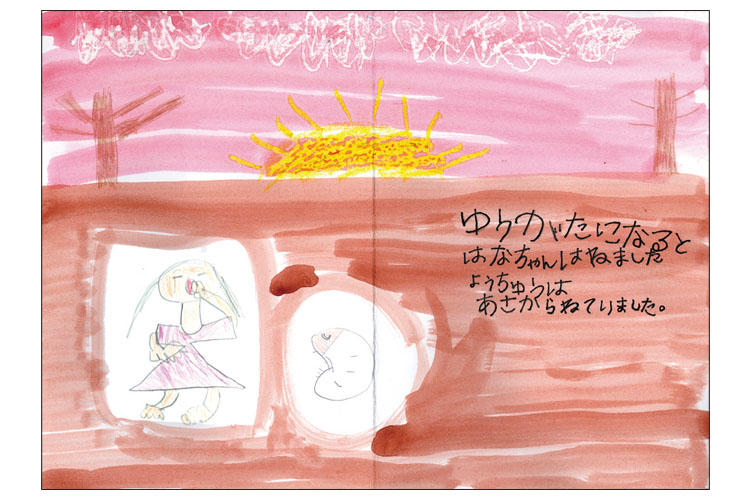 ゆうのがたになると
はなちゃんはねました
ようちゅうは
あさからねていました。